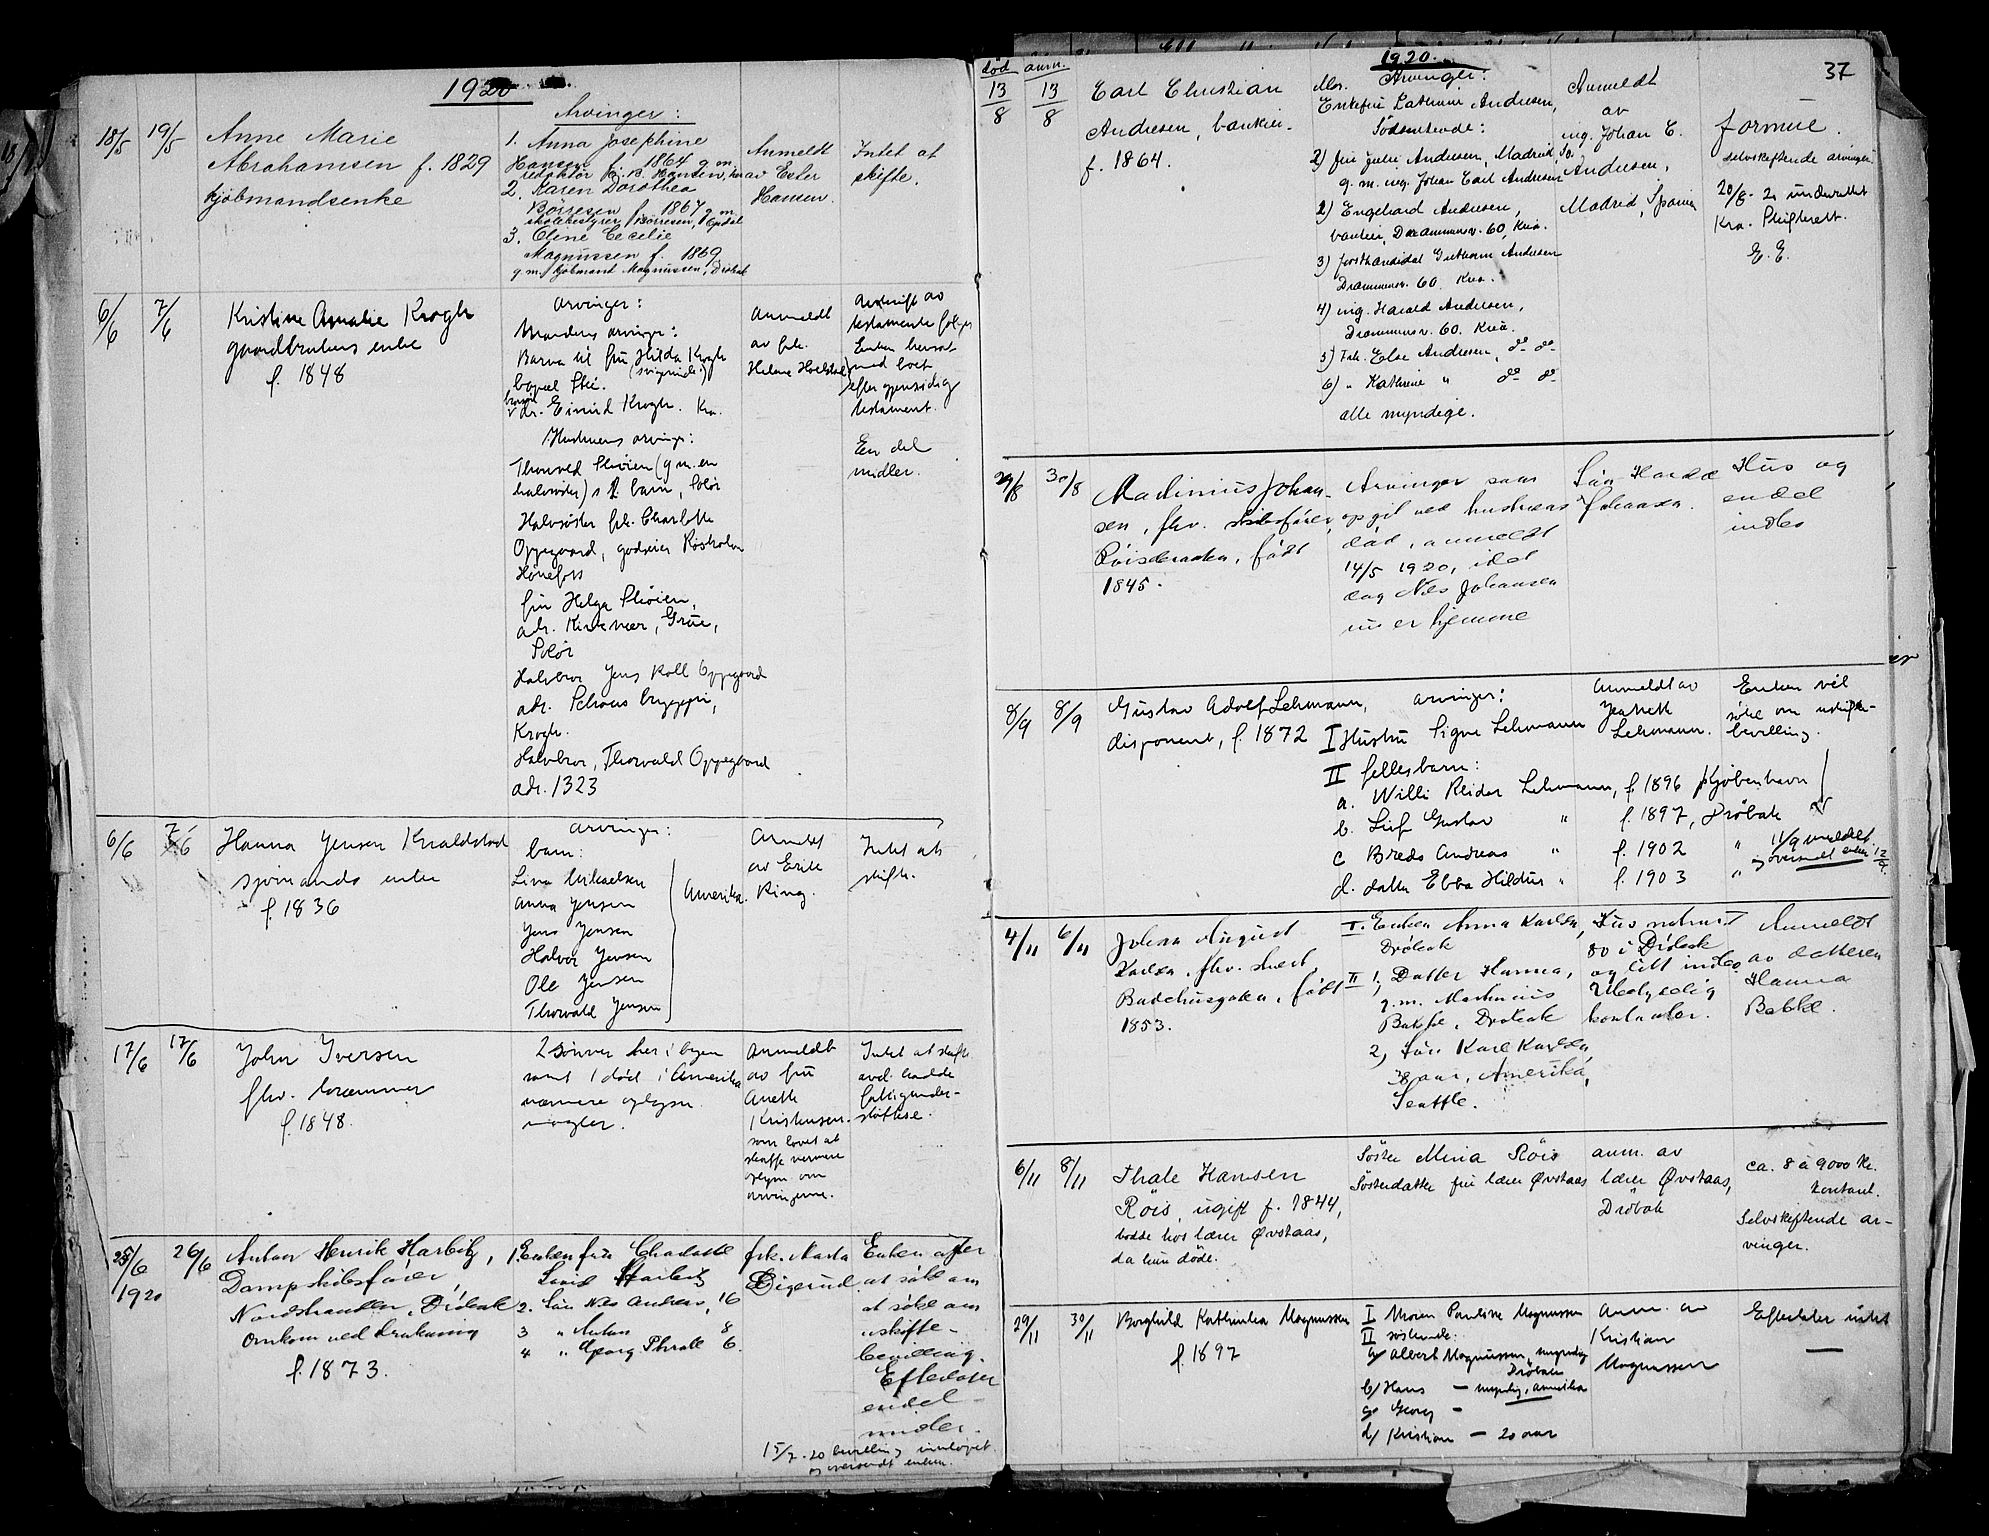 1920
Arvinger:
18/5 19/5 Anne Marie
Abrahamsen f. 1829
kjöbmandsenke
1. Anna Josephine
Hansen f. 1864 g.m.
redaktör Hansen, her
2. Karen Dorothea
Börresen f. 1867 g.m.
skolebestyrer Börresen,
3. Oline Cecilie
Magnussen f. 1869
g.m. kjöbmand Magnussen, Dröbak
Anmeldt
av Ester
Hansen.
Intet at
skifte.
6/6 7/6 Kristine Amalie Krogh
gaardbrukers enke
f. 1848
Arvinger:
Mandens arvinger:
Barna til fru Hilda Krogh
(svigerinde)
dr. Eivind Krogh. Kra.
Hustruens arvinger:
Thorvald Skiöien (g.m. en
halvsöster) s barn, Solör
Halvsöster frk. Charlotte
Oppegaard,
Hönefoss
fru Helga Skiöien,
adr. Kirkenær, Grue,
Solör
Halvbror Jens Koll Oppegaard
adr. Schous bryggeri,
Krogh.
Halvbror, Thorvald Oppegaard
adr. 1323
Anmeldt
av frk.
Helene
Avskrift av
testamente følger
Enken hensat
med boet
efter gjensidig
testament.
En del
midler.
6/6 7/6 Hanna Jensen Knaldstad
sjömands enke
f. 1836
Arvinger:
barn:
Lina Mikaelsen
Anna Jensen
Jens Jensen
Halvor Jensen
Ole Jensen
Thorvald Jensen
Amerika.
Anmeldt
av Erik
Ring.
Intet at
skifte.
17/6 17/6 John Iversen
fhv. bræmmer
f. 1848.
2 sönner her i byen
samt 1 död i Amerika
nærmere oplysn.
mangler.
Anmeldt
av fru
Anette
Kristensen.
som lovet at
skaffe nærmere
oplysn. om
arvingerne.
Intet at skifte.
avd. hadde
fattigunder-
støttelse.
25/6 1920 26/6 Anton Henrik Harbitz,
Dampskibsförer,
Nordstranden, Dröbak
Omkom ved drukning
f. 1873.
1. Enken fru Charlotte
Harbitz
2. Sön Nils Andreas, 16
3 " Anton 8
4 " Georg Thrall 6
frk. Marta
Digerud.
Enken agter
at söke om
at söke om
uskifte-
bevilling.
Efterlater
endel
midler.
15/7-20 bevilling innløpet
og oversendt enken.
1920. 37
död anm.
13/8 13/8 Carl Christian
Andresen, bankier.
f. 1864.
Arvinger:
Enkefru Cathrine Andresen,
Södskende:
1) fru Julie Andresen, Madrid,
g.m. ing. Johan Carl Andresen
2) Engelhard Andresen,
bankier, Drammensv. 60, Kria.
3) forstkandidat Andresen
Drammensv. 60. Kria.
4) ing. Harald Andresen,
Drammensv. 60. Kria.
5) Frk. Else Andresen, do do
6) " Kathrine " do do
alle myndige.
Anmeldt
av
ing. Johan C.
Andresen,
Madrid, Spania
formue.
selvskiftende arvinger
20/8-20 underrettet
Kra. Skifterett.
E.E.
29/8 30/8 Martinius Johan-
sen, fhv. skibsförer,
född
1845.
Arvinger som
opgit ved hustruens
död, anmeldt
14/5 1920, idet
dog Nils Johansen
nu er hjemme
Sön
Johansen.
Hus og
endel
indbo
8/9 8/9 Gustav Adolf Lehmann,
disponent, f. 1872
Arvinger:
I Hustru Signe Lehmann
II fellesbarn:
a. Willi Reidar Lehmann, f. 1896 Kjöbenhavn
b. Leif Gustav " f. 1897, Dröbak
c Andreas " f. 1902 "
d. datter Ebba Hildur " f. 1903 "
Anmeldt av
Jeanette
Lehmann.
Enken vil
söke om uskifte-
bevilling.
11/9 meldt
og oversendt enken 12/9.
4/11 6/11 Johan August
Karlsen, fhv.
Badehusgaten, född
1853.
I. Enken Anna Karlsen,
Dröbak
II 1, Datter Hanna,
g.m. Martinius
Bakke, Dröbak
2, Sön Karl Karlsen
38 aar, Amerika,
Seattle.
Hus matrn
80 i Dröbak
og litt indbo
Ubetydelig
kontanter.
Anmeldt
av datteren
Hanna
Bakke.
6/11 8/11 Thale Hansen
Röis, ugift f. 1844,
bodde hos lærer Øvstaas,
da hun döde.
Söster Mina Röis
Sösterdatter fru lærer Øvstaas
anm. av
lærer Øvstaas,
Dröbak
ca. 8 à 9000 kr.
kontant.
Selvskiftende ar-
vinger.
29/11 30/11 Borghild Kathinka Magnussen
f. 1897
I Moren Pauline Magnussen
II söskende:
a/ Albert Magnussen, myndig
Dröbak
b/ Hans — myndig, Amerika
c/ Georg —
d/ Kristian — 20 aar
Anm. av
Kristian
Magnussen
Efterlater intet
—